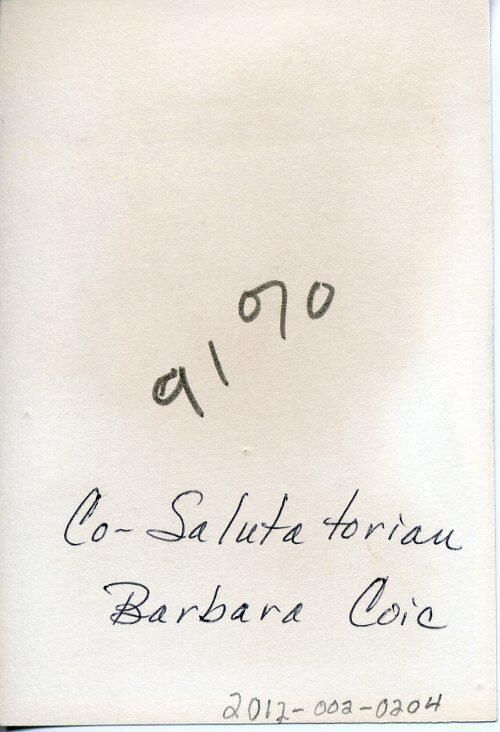 91070
Co-Salutatorian
Barbara Coic
2012-002-0204